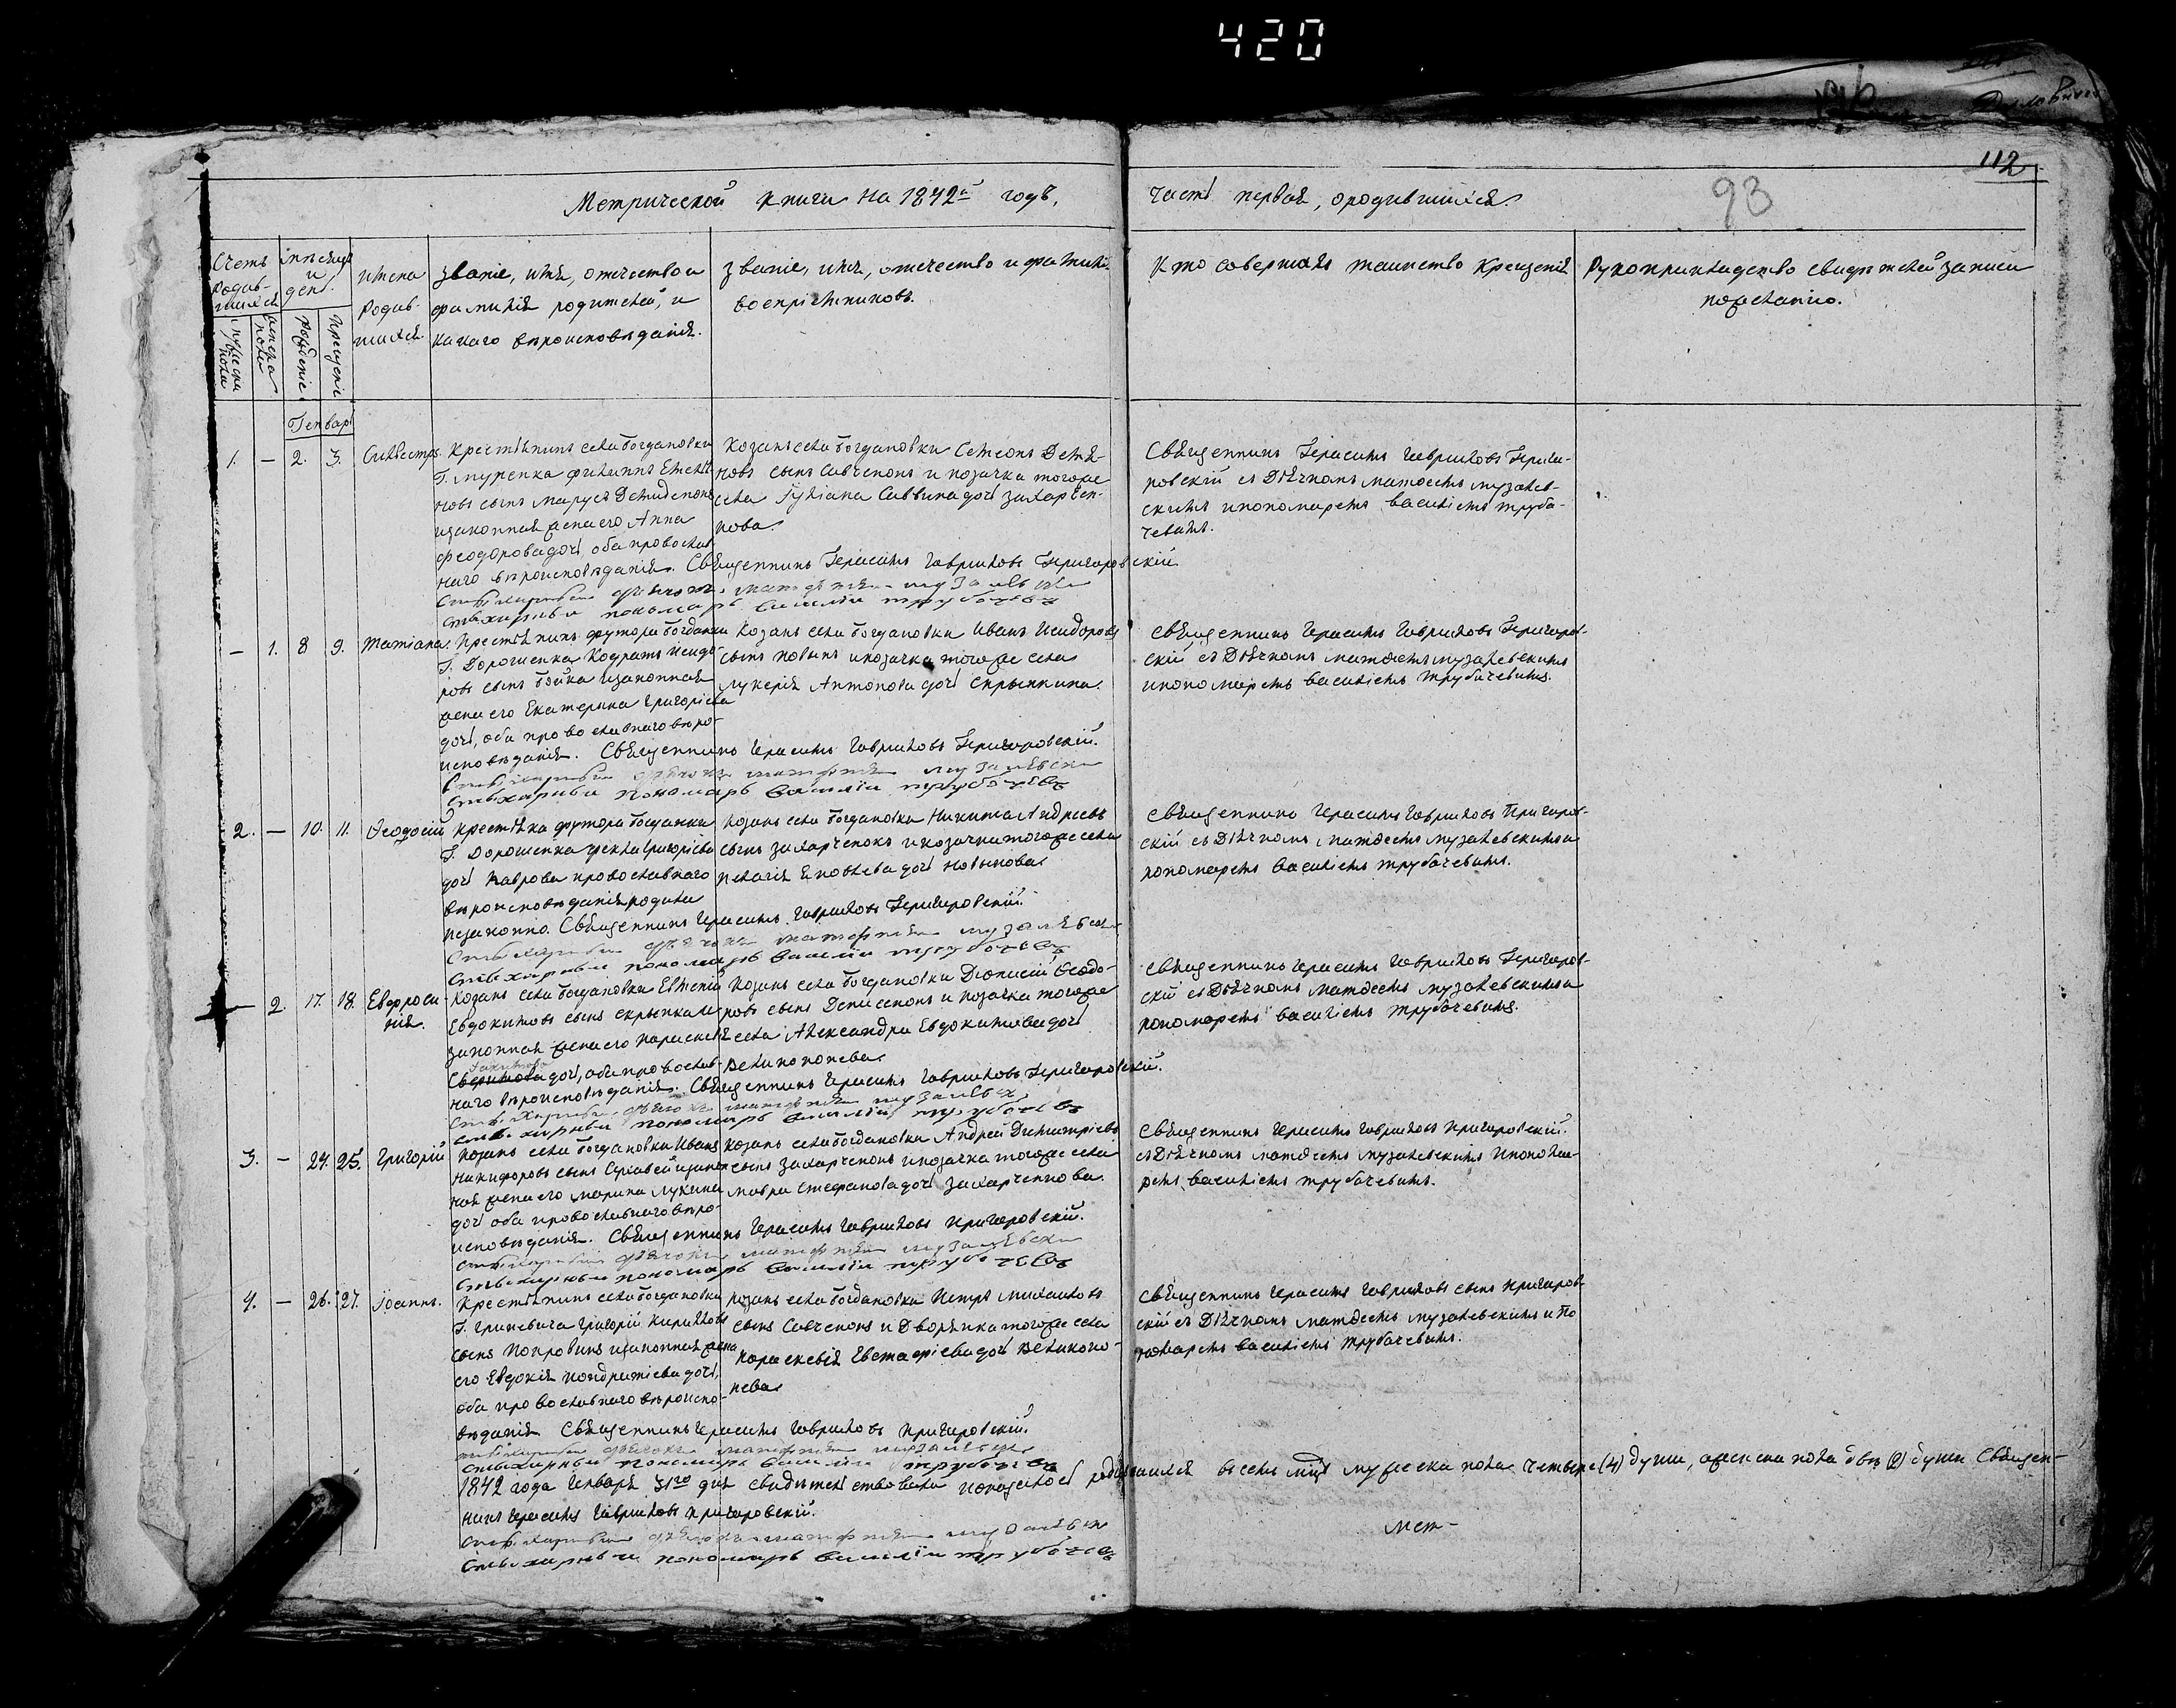 420
112
93
Метрической книги на 1842й годъ,
часть первая, ородившихся.
Счетъ родив-
шихся
мужеска пола
женска пола
мѣсяцъ
и
ден.
рожденіе
крещенія
имена
родив-
шихся
званіе, имя, отечество и
фамилія родителей, и
какаго вѣроисповѣданія.
званіе, имя, отечество и фамилія
воспріемниковъ.
Кто совершалъ таинство крещенія
Рукоприкладство свидѣтелей записи
пожеланію.
Генварь
1. — 2. 3. Силвестръ.
Крестьянинъ села Богдановки
Г. филиппъ Емелья
новъ сынъ
изаконная жена его Анна
Феодорова дочь, оба православ
наго вѣроисповѣданія. Священникъ Герасимъ Гавриловъ Григоровскій
Стихарный дьячокъ Матфей Музалевски
Стихарный пономарь Василій Трубачевъ
Козакъ села Богдановки Симеонъ Демья
новъ сынъ Савченокъ и козачка тогоже
села Іуліана Саввина дочь Захарчен-
кова.
Священникъ Герасимъ Гавриловъ Григо-
ровскій съ Дьячкомъ Матвеемъ Музалев-
скимъ ипономаремъ Василіемъ Труба-
чевымъ.
— 1. 8 9. Татіана.
Крестьянинъ футора Богданки
Г. Дорошенка Кодратъ Исидо-
ровъ сынъ Бойка изаконная
жена его Екатерина Григоріева
дочь, оба православнаго вѣро-
исповѣданія. Священникъ Герасимъ Гавриловъ Григоровскій.
Стихарный дьячокъ Матфей Музалевски
Стихарный пономарь Василій Трубачевъ
Козакъ села Богдановки Иванъ Исидоровъ
сынъ Новыкъ икозачка тогоже села
Лукерія Антонова дочь Скрыпкина.
Священникъ Герасимъ Гавриловъ Григоров-
скій съ Дьячкомъ Матвеемъ Музалевскимъ
ипономаремъ Василіемъ Трубачевымъ.
2. — 10. 11. Ѳеодосій
Крестьянка футора Богданки
Г. Дорошенка Фекла Григоріева
дочь православнаго
вѣроисповѣданія родила
незаконно. Священникъ Герасимъ Гавриловъ Григоровскій.
Стихарный дьячокъ Матфей Музалевски
Стихарный пономарь Василій Трубачевъ
Козакъ села Богдановки Никита Андреевъ
сынъ Захарченокъ и козачка тогоже села
Пелагія дочь Новыкова
Священникъ Герасимъ Гавриловъ Григоров-
скій съ Дьячкомъ Матвеемъ Музалевскимъ и
пономаремъ Василіемъ Трубачевымъ.
— 2. 17. 18. Евфроси-
нія.
Козакъ села Богдановки Евтихій
Евдокимовъ сынъ Скрыпка и
законная жена его Параскевія
дочь, оба православ-
наго вѣроисповѣданія. Священникъ Герасимъ Гавриловъ Григоровскій.
Стихарный дьячокъ Матфей Музалевск
Стихарный пономарь Василій Трубачевъ
Козакъ села Богдановки Діонисій Ѳеодо-
ровъ сынъ Денисенокъ и козачка тогоже
села Александра Евдокимова дочь
Великоконева
Священникъ Герасимъ Гавриловъ Григоров-
скій съ Дьячкомъ Матвеемъ Музалевскимъ и
пономаремъ Василіемъ Трубачевымъ.
3. — 24. 25. Григорій
Козакъ села Богдановки Иванъ
Никифоровъ сынъ изакон
ная жена его Марина Лукина
дочь оба православнаго вѣро-
исповѣданія. Священникъ Герасимъ Гавриловъ Григоровскій.
Стихарный дьячокъ Матфей Музалевски
Стихарный пономарь Василій Трубачевъ
Козакъ села Богдановки Андрей Димитріевъ
сынъ Захарченокъ икозачка тогоже села
Мавра Стефанова дочь Захарченкова.
Священникъ Герасимъ Гавриловъ Григоровскій.
съ Дьячкомъ Матвеемъ Музалевскимъ ипонома-
ремъ Василіемъ Трубачевымъ.
4. — 26. 27. Іоаннъ.
Крестьянинъ села Богдановки
Г. Гриневича Григорій Кириловъ
сынъ изаконная жена
его Евдокія Кондратіева дочь,
оба православнаго вѣроиспо-
вѣданія Священникъ Герасимъ Гавриловъ Григоровскій.
Стихарный дьячокъ Матфей Музалевски
Стихарный пономарь Василій Трубачевъ
Козакъ села Богдановки Петръ Михаиловъ
сынъ Савченокъ и Дворянка тогоже села
Параскевія Евстафіева дочь Великоко-
нева
Священникъ Герасимъ Гавриловъ сынъ Григоров-
скій съ Дьячкомъ Матвеемъ Музалевскимъ и по
номаремъ Василіемъ Трубачевымъ.
1842 года Генваря 31го дня свидѣтельствовалъ родившихся всемъ мцѣ мужеска пола четыре (4) души, аженска пола двѣ (2) души Священ-
никъ Герасимъ Гавриловъ Григоровскій.
Стихарный дьячокъ Матфей Музалевски
Стихарный пономарь Василій Трубачевъ
Мет-